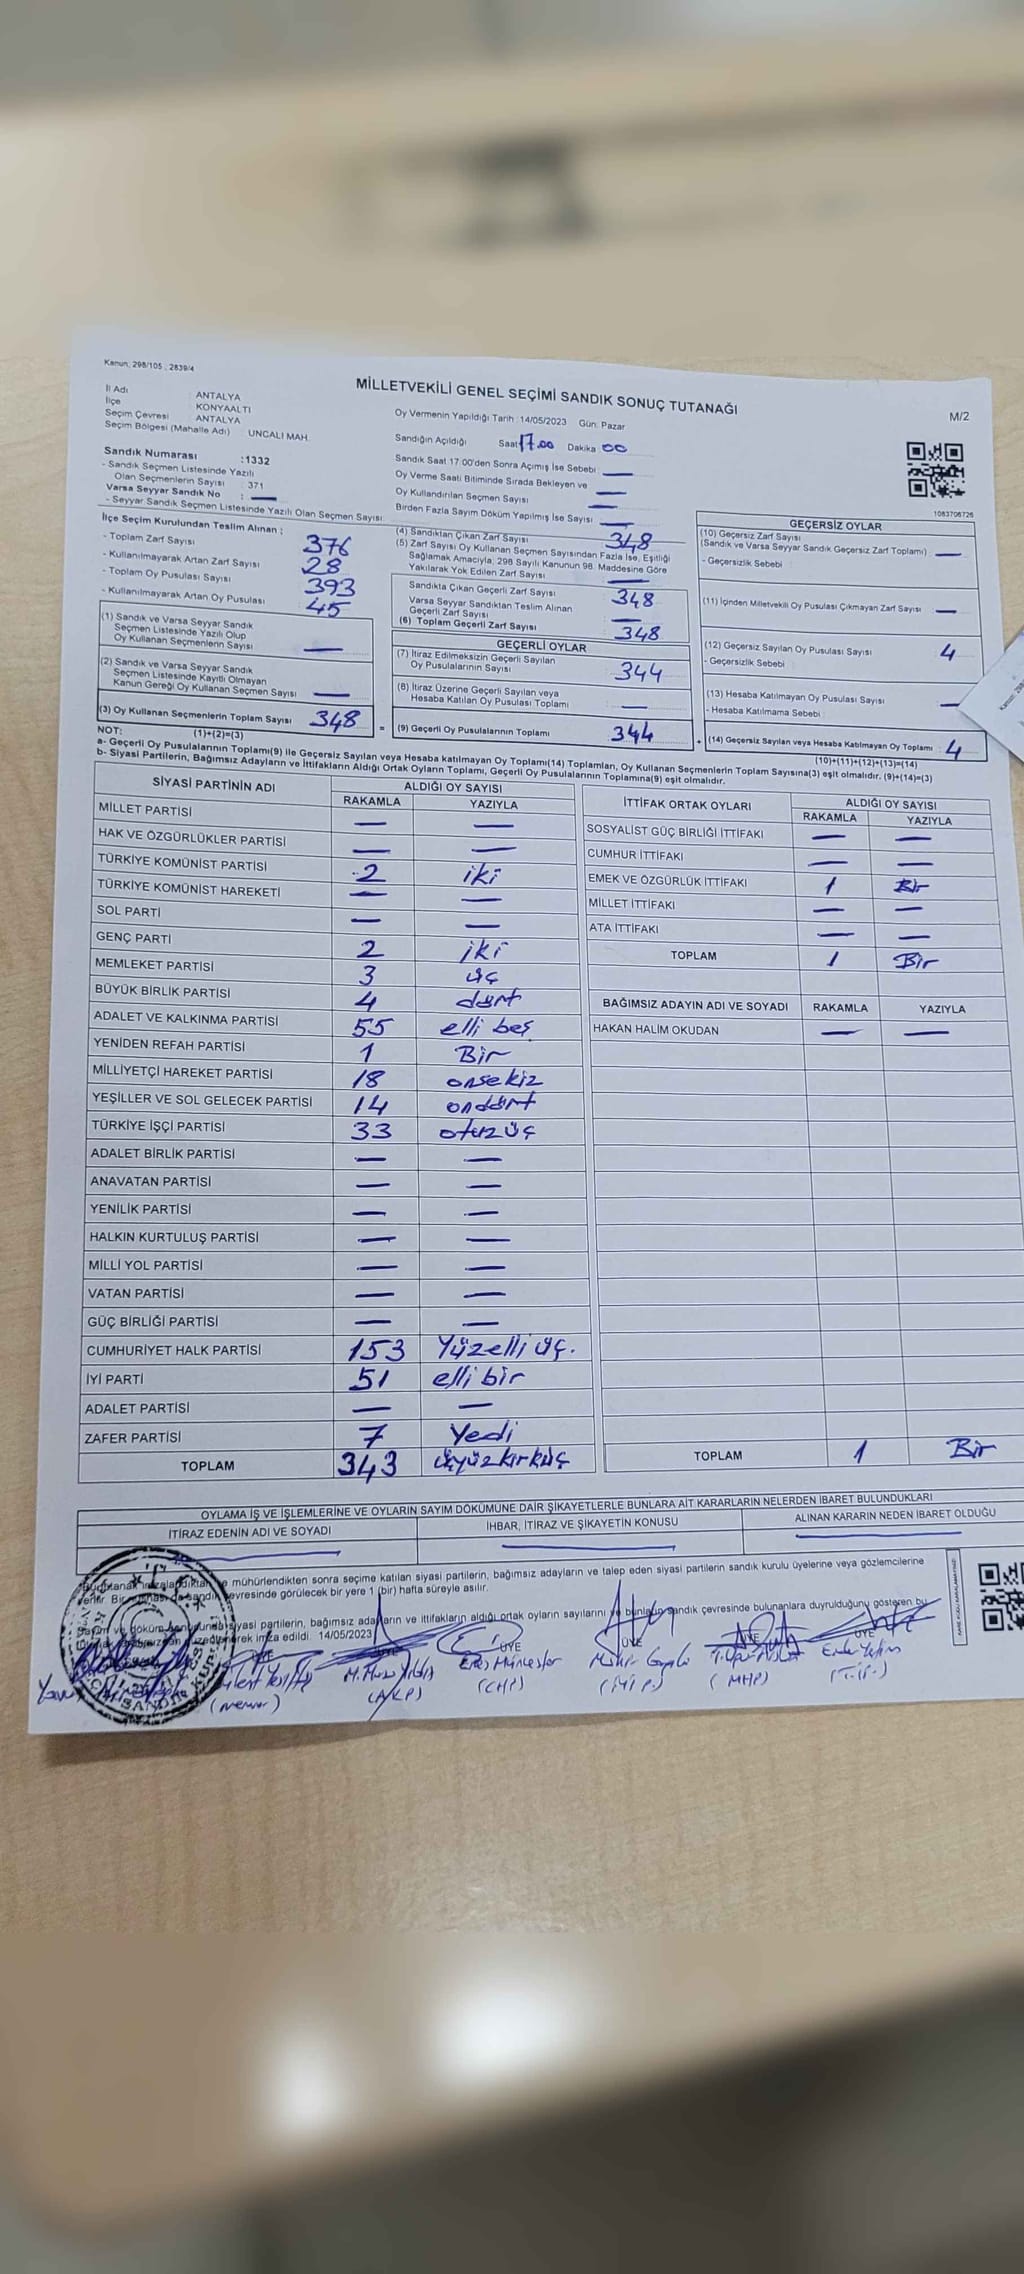 Kanun: 298/105 , 2839/4
MİLLETVEKİLİ GENEL SEÇİMİ SANDIK SONUÇ TUTANAĞI
M/2
İl Adı : ANTALYA
İlçe : KONYAALTI
Seçim Çevresi : ANTALYA
Seçim Bölgesi (Mahalle Adı) : UNCALI MAH.
Sandık Numarası :1332
- Sandık Seçmen Listesinde Yazılı
Olan Seçmenlerin Sayısı : 371
Varsa Seyyar Sandık No : —
- Seyyar Sandık Seçmen Listesinde Yazılı Olan Seçmen Sayısı:
Oy Vermenin Yapıldığı Tarih :14/05/2023 Gün: Pazar
Sandığın Açıldığı Saat 17.00 Dakika 00
Sandık Saat 17:00'den Sonra Açımış İse Sebebi : —
Oy Verme Saati Bitiminde Sırada Bekleyen ve
Oy Kullandırılan Seçmen Sayısı —
Birden Fazla Sayım Döküm Yapılmış İse Sayısı —
1083706726
İlçe Seçim Kurulundan Teslim Alınan ;
- Toplam Zarf Sayısı 376
- Kullanılmayarak Artan Zarf Sayısı 28
- Toplam Oy Pusulası Sayısı 393
- Kullanılmayarak Artan Oy Pusulası 45
(1) Sandık ve Varsa Seyyar Sandık
Seçmen Listesinde Yazılı Olup
Oy Kullanan Seçmenlerin Sayısı —
(2) Sandık ve Varsa Seyyar Sandık
Seçmen Listesinde Kayıtlı Olmayan
Kanun Gereği Oy Kullanan Seçmen Sayısı —
(3) Oy Kullanan Seçmenlerin Toplam Sayısı 348
(1)+(2)=(3)
(4) Sandıktan Çıkan Zarf Sayısı 348
(5) Zarf Sayısı Oy Kullanan Seçmen Sayısından Fazla İse, Eşitliği
Sağlamak Amacıyla, 298 Sayılı Kanunun 98. Maddesine Göre
Yakılarak Yok Edilen Zarf Sayısı —
Sandıkta Çıkan Geçerli Zarf Sayısı 348
Varsa Seyyar Sandıktan Teslim Alınan
Geçerli Zarf Sayısı —
(6) Toplam Geçerli Zarf Sayısı 348
GEÇERLİ OYLAR
(7) İtiraz Edilmeksizin Geçerli Sayılan
Oy Pusulalarının Sayısı 344
(8) İtiraz Üzerine Geçerli Sayılan veya
Hesaba Katılan Oy Pusulası Toplamı —
= (9) Geçerli Oy Pusulalarının Toplamı 344
GEÇERSİZ OYLAR
(10) Geçersiz Zarf Sayısı
(Sandık ve Varsa Seyyar Sandık Geçersiz Zarf Toplamı) —
- Geçersizlik Sebebi :
(11) İçinden Milletvekili Oy Pusulası Çıkmayan Zarf Sayısı —
(12) Geçersiz Sayılan Oy Pusulası Sayısı 4
- Geçersizlik Sebebi
(13) Hesaba Katılmayan Oy Pusulası Sayısı —
- Hesaba Katılmama Sebebi :
+ (14) Geçersiz Sayılan veya Hesaba Katılmayan Oy Toplamı : 4
(10)+(11)+(12)+(13)=(14)
NOT:
a- Geçerli Oy Pusulalarının Toplamı(9) ile Geçersiz Sayılan veya Hesaba katılmayan Oy Toplamı(14) Toplamları, Oy Kullanan Seçmenlerin Toplam Sayısına(3) eşit olmalıdır. (9)+(14)=(3)
b- Siyasi Partilerin, Bağımsız Adayların ve İttifakların Aldığı Ortak Oyların Toplamı, Geçerli Oy Pusulalarının Toplamına(9) eşit olmalıdır.
SİYASİ PARTİNİN ADI ALDIĞI OY SAYISI
RAKAMLA YAZIYLA
MİLLET PARTİSİ — —
HAK VE ÖZGÜRLÜKLER PARTİSİ — —
TÜRKİYE KOMÜNİST PARTİSİ 2 iki
TÜRKİYE KOMÜNİST HAREKETİ — —
SOL PARTİ — —
GENÇ PARTİ 2 iki
MEMLEKET PARTİSİ 3 üç
BÜYÜK BİRLİK PARTİSİ 4 dört
ADALET VE KALKINMA PARTİSİ 55 elli beş
YENİDEN REFAH PARTİSİ 1 Bir
MİLLİYETÇİ HAREKET PARTİSİ 18 onsekiz
YEŞİLLER VE SOL GELECEK PARTİSİ 14 ondört
TÜRKİYE İŞÇİ PARTİSİ 33 otuzüç
ADALET BİRLİK PARTİSİ — —
ANAVATAN PARTİSİ — —
YENİLİK PARTİSİ — —
HALKIN KURTULUŞ PARTİSİ — —
MİLLİ YOL PARTİSİ — —
VATAN PARTİSİ — —
GÜÇ BİRLİĞİ PARTİSİ — —
CUMHURİYET HALK PARTİSİ 153 Yüzelli üç.
İYİ PARTİ 51 elli bir
ADALET PARTİSİ — —
ZAFER PARTİSİ 7 Yedi
TOPLAM 343 üçyüzkırküç
İTTİFAK ORTAK OYLARI ALDIĞI OY SAYISI
RAKAMLA YAZIYLA
SOSYALİST GÜÇ BİRLİĞİ İTTİFAKI — —
CUMHUR İTTİFAKI — —
EMEK VE ÖZGÜRLÜK İTTİFAKI 1 Bir
MİLLET İTTİFAKI — —
ATA İTTİFAKI — —
TOPLAM 1 Bir
BAĞIMSIZ ADAYIN ADI VE SOYADI RAKAMLA YAZIYLA
HAKAN HALİM OKUDAN — —
TOPLAM 1 Bir
OYLAMA İŞ VE İŞLEMLERİNE VE OYLARIN SAYIM DÖKÜMÜNE DAİR ŞİKAYETLERLE BUNLARA AİT KARARLARIN NELERDEN İBARET BULUNDUKLARI
İTİRAZ EDENİN ADI VE SOYADI İHBAR, İTİRAZ VE ŞİKAYETİN KONUSU ALINAN KARARIN NEDEN İBARET OLDUĞU
mühürlendikten sonra seçime katılan siyasi partilerin, bağımsız adayların ve talep eden siyasi partilerin sandık kurulu üyelerine veya gözlemcilerine
çevresinde görülecek bir yere 1 (bir) hafta süreyle asılır.
siyasi partilerin, bağımsız adayların ve ittifakların aldığı ortak oyların sayılarını ve bunların sandık çevresinde bulunanlara duyrulduğunu gösteren bu
imza edildi. 14/05/2023
ÜYE ÜYE ÜYE ÜYE ÜYE
(memur) (AKP) (CHP) (İYİ P.) (MHP) (T.İ.P.)